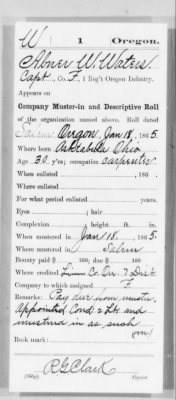 W | 1 | Oregon.
Abner W. Waters
Capt., Co. F, 1 Reg't Oregon Infantry.
Appears on
Company Muster-in and Descriptive Roll
of the organization named above. Roll dated
Salem Oregon Jan 18, 1865.
Where born Ashtabula Ohio
Age 30 y'rs; occupation Carpenter
When enlisted , 186 .
Where enlisted
For what period enlisted years.
Eyes ; hair
Complexion ; height ft. in.
When mustered in Jan 18, 1865.
Where mustered in Salem
Bounty paid $ 100; due $ 100
Where credited Linn Co. Or. 7 Dist
Company to which assigned F.
Remarks: Pay due from muster.
Appointed Cond 2 Lt and
mustered in as such
Book mark:
R G Clark
Copyist.